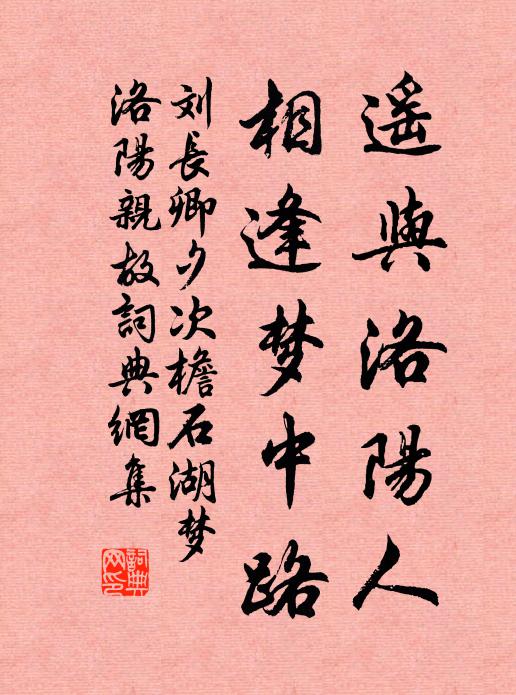 遥與洛陽人
相逢梦中路
刘長卿夕次檐石湖梦
洛陽親故詞典網集
詞典网印